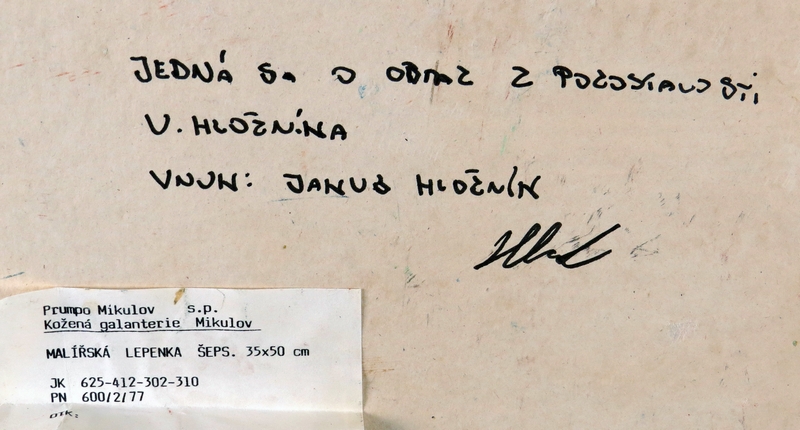 JEDNÁ SA O OBRAZ Z POZOSTALOSTI
V. HLOŽNÍKA
VNUK: JANUS HLOŽNÍK
Prumpo Mikulov s.p.
Kožená galanterie Mikulov
MALÍŘSKÁ LEPENKA ŠEPS. 35x50 cm
JK 625-412-302-310
PN 600/2/77
OTK: